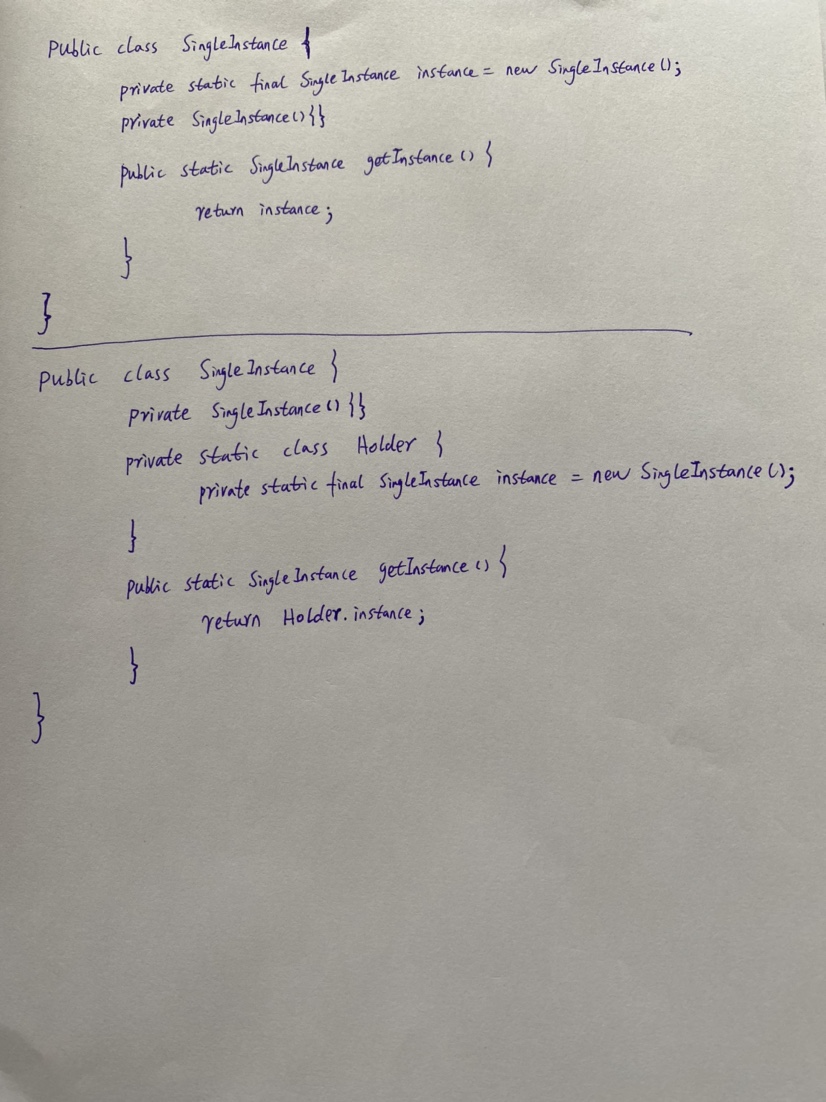 Public class SingleInstance {
private static final SingleInstance instance = new SingleInstance();
private SingleInstance(){}
public static SingleInstance getInstance() {
return instance;
}
}
Public class SingleInstance {
private SingleInstance(){}
private static class Holder {
private static final SingleInstance instance = new SingleInstance();
}
public static SingleInstance getInstance() {
return Holder.instance;
}
}